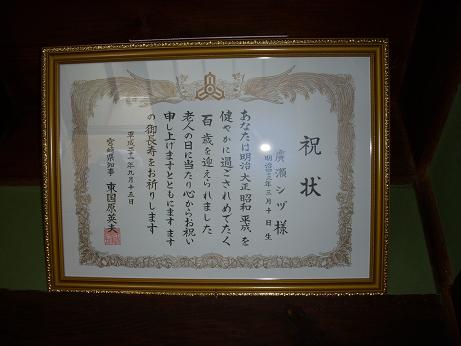 祝状
廣瀬シヅ様
明治四三年三月十日生
あなたは明治 大正 昭和 平成を
健やかに過ごされめでたく
百歳を迎えられました
老人の日に当たり心からお祝い
申し上げますとともにますます
の御長寿をお祈りします
平成二十一年九月十五日
宮崎県知事 東国原英夫